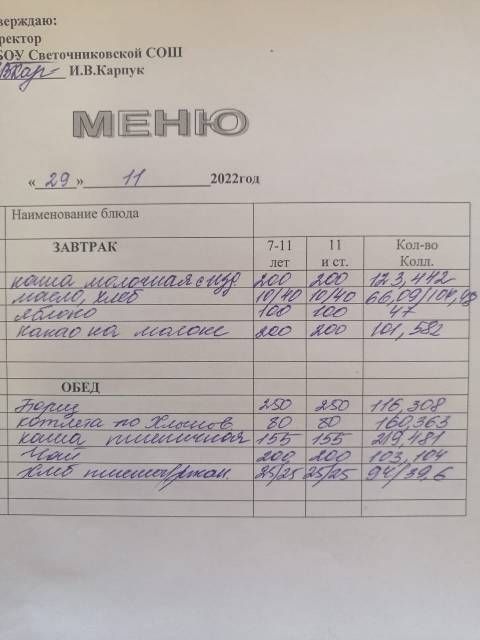 тверждаю:
ректор
БОУ Светочниковской СОШ
И.В.Карпук
МЕНЮ
«29» 11 2022год
Наименование блюда
ЗАВТРАК 7-11 лет 11 и ст. Кол-во Колл.
каша молочная с изд 200 200 123,442
масло, хлеб 10/40 10/40 66,09/104,
яблоко 100 100 47
какао на молоке 200 200 101,582
ОБЕД
Борщ 250 250 116,308
котлета по Хлынов 80 80 160,363
каша пшеничная 155 155 219,481
Чай 200 200 103,104
Хлеб 25/25 25/25 94/39,6